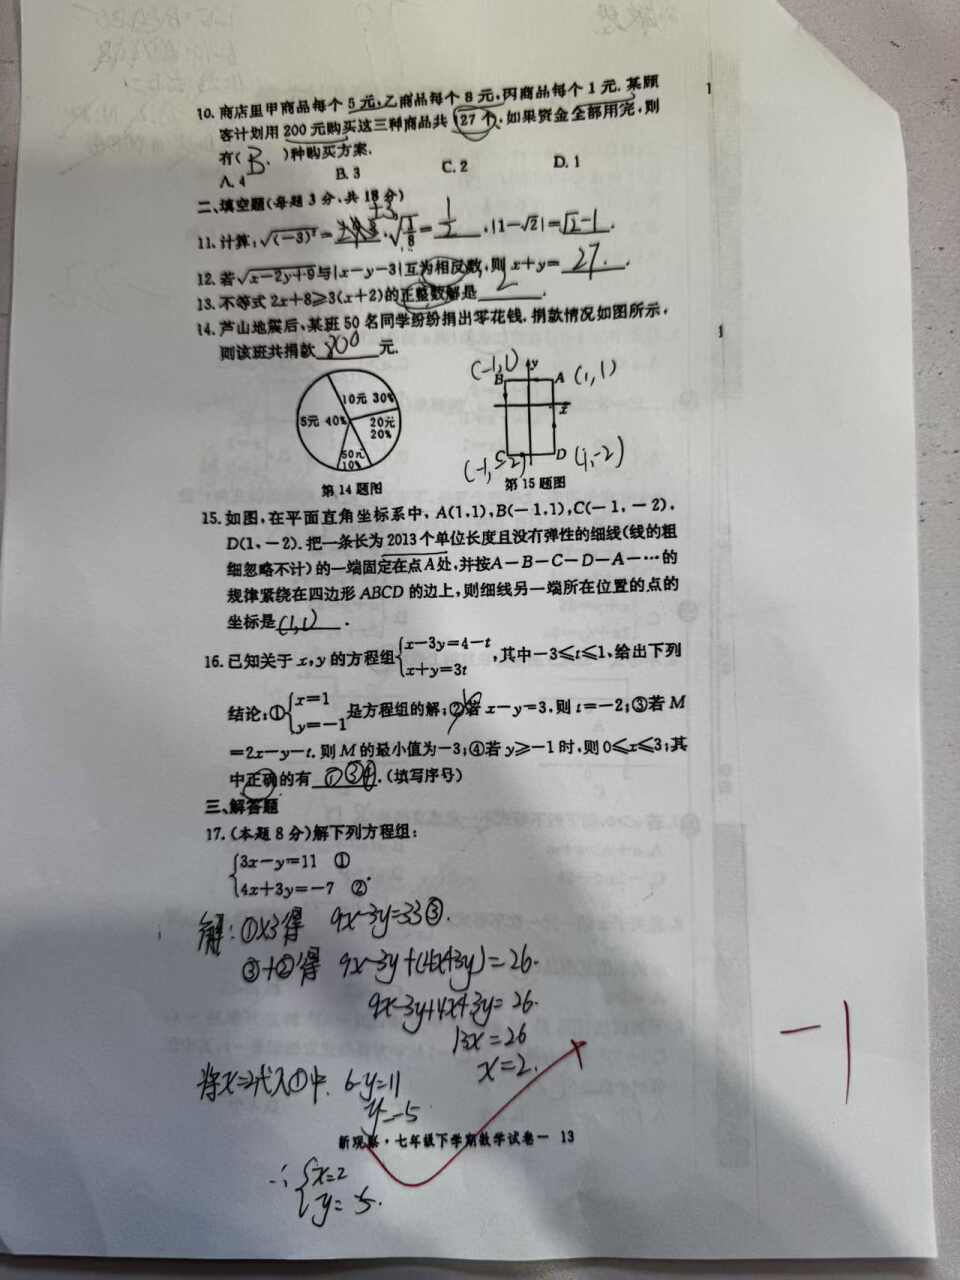 10. 商店里甲商品每个 5 元,乙商品每个 8 元,丙商品每个 1 元. 某顾
客计划用 200 元购买这三种商品共 27 个, 如果资金全部用完, 则
有( B. )种购买方案.
A. 4 B. 3 C. 2 D. 1
二、填空题(每题 3 分、共 18 分)
±3
1
11. 计算: ,|1-√2|=√2-1.
12. 若√x-2y+9与|x-y-3|互为相反数,则 x+y= 27.
13. 不等式 2x+8≥3(x+2)的正整数解是 2 .
14. 芦山地震后、某班 50 名同学纷纷捐出零花钱. 捐款情况如图所示,
则该班共捐款 800 元.
10元 30%
5元 40%
20元
20%
50元
10%
第 14 题图
(-1,1)
y
B
A (1,1)
x
C
D (1,-2)
第 15 题图
15. 如图, 在平面直角坐标系中、A(1,1),B(-1,1),C(-1,-2),
D(1,-2). 把一条长为 2013 个单位长度且没有弹性的细线(线的粗
细忽略不计)的一端固定在点 A 处,并按A-B-C-D-A-…的
规律紧绕在四边形 ABCD 的边上,则细线另一端所在位置的点的
坐标是 (1,1) .
16. 已知关于 x,y 的方程组{x-3y=4-t
x+y=3t ,其中-3≤t≤1、给出下列
结论:①{x=1
y=-1 是方程组的解;②若 x-y=3,则 t=-2;③若 M
=2x-y-t. 则 M 的最小值为-3;④若 y≥-1 时,则 0≤x≤3;其
中正确的有 ①③④ .(填写序号)
三、解答题
17. (本题 8 分)解下列方程组:
{3x-y=11 ①
4x+3y=-7 ②.
解: ①×3得 9x-3y=33③.
③+②得 9x-3y+(4x+3y)=26.
9x-3y+4x+3y=26.
13x=26
x=2.
将x=2代入①中. 6-y=11
y=-5
新观察·七年级下学期数学试卷一 13
∴{x=2
y=-5.
-1
1
1